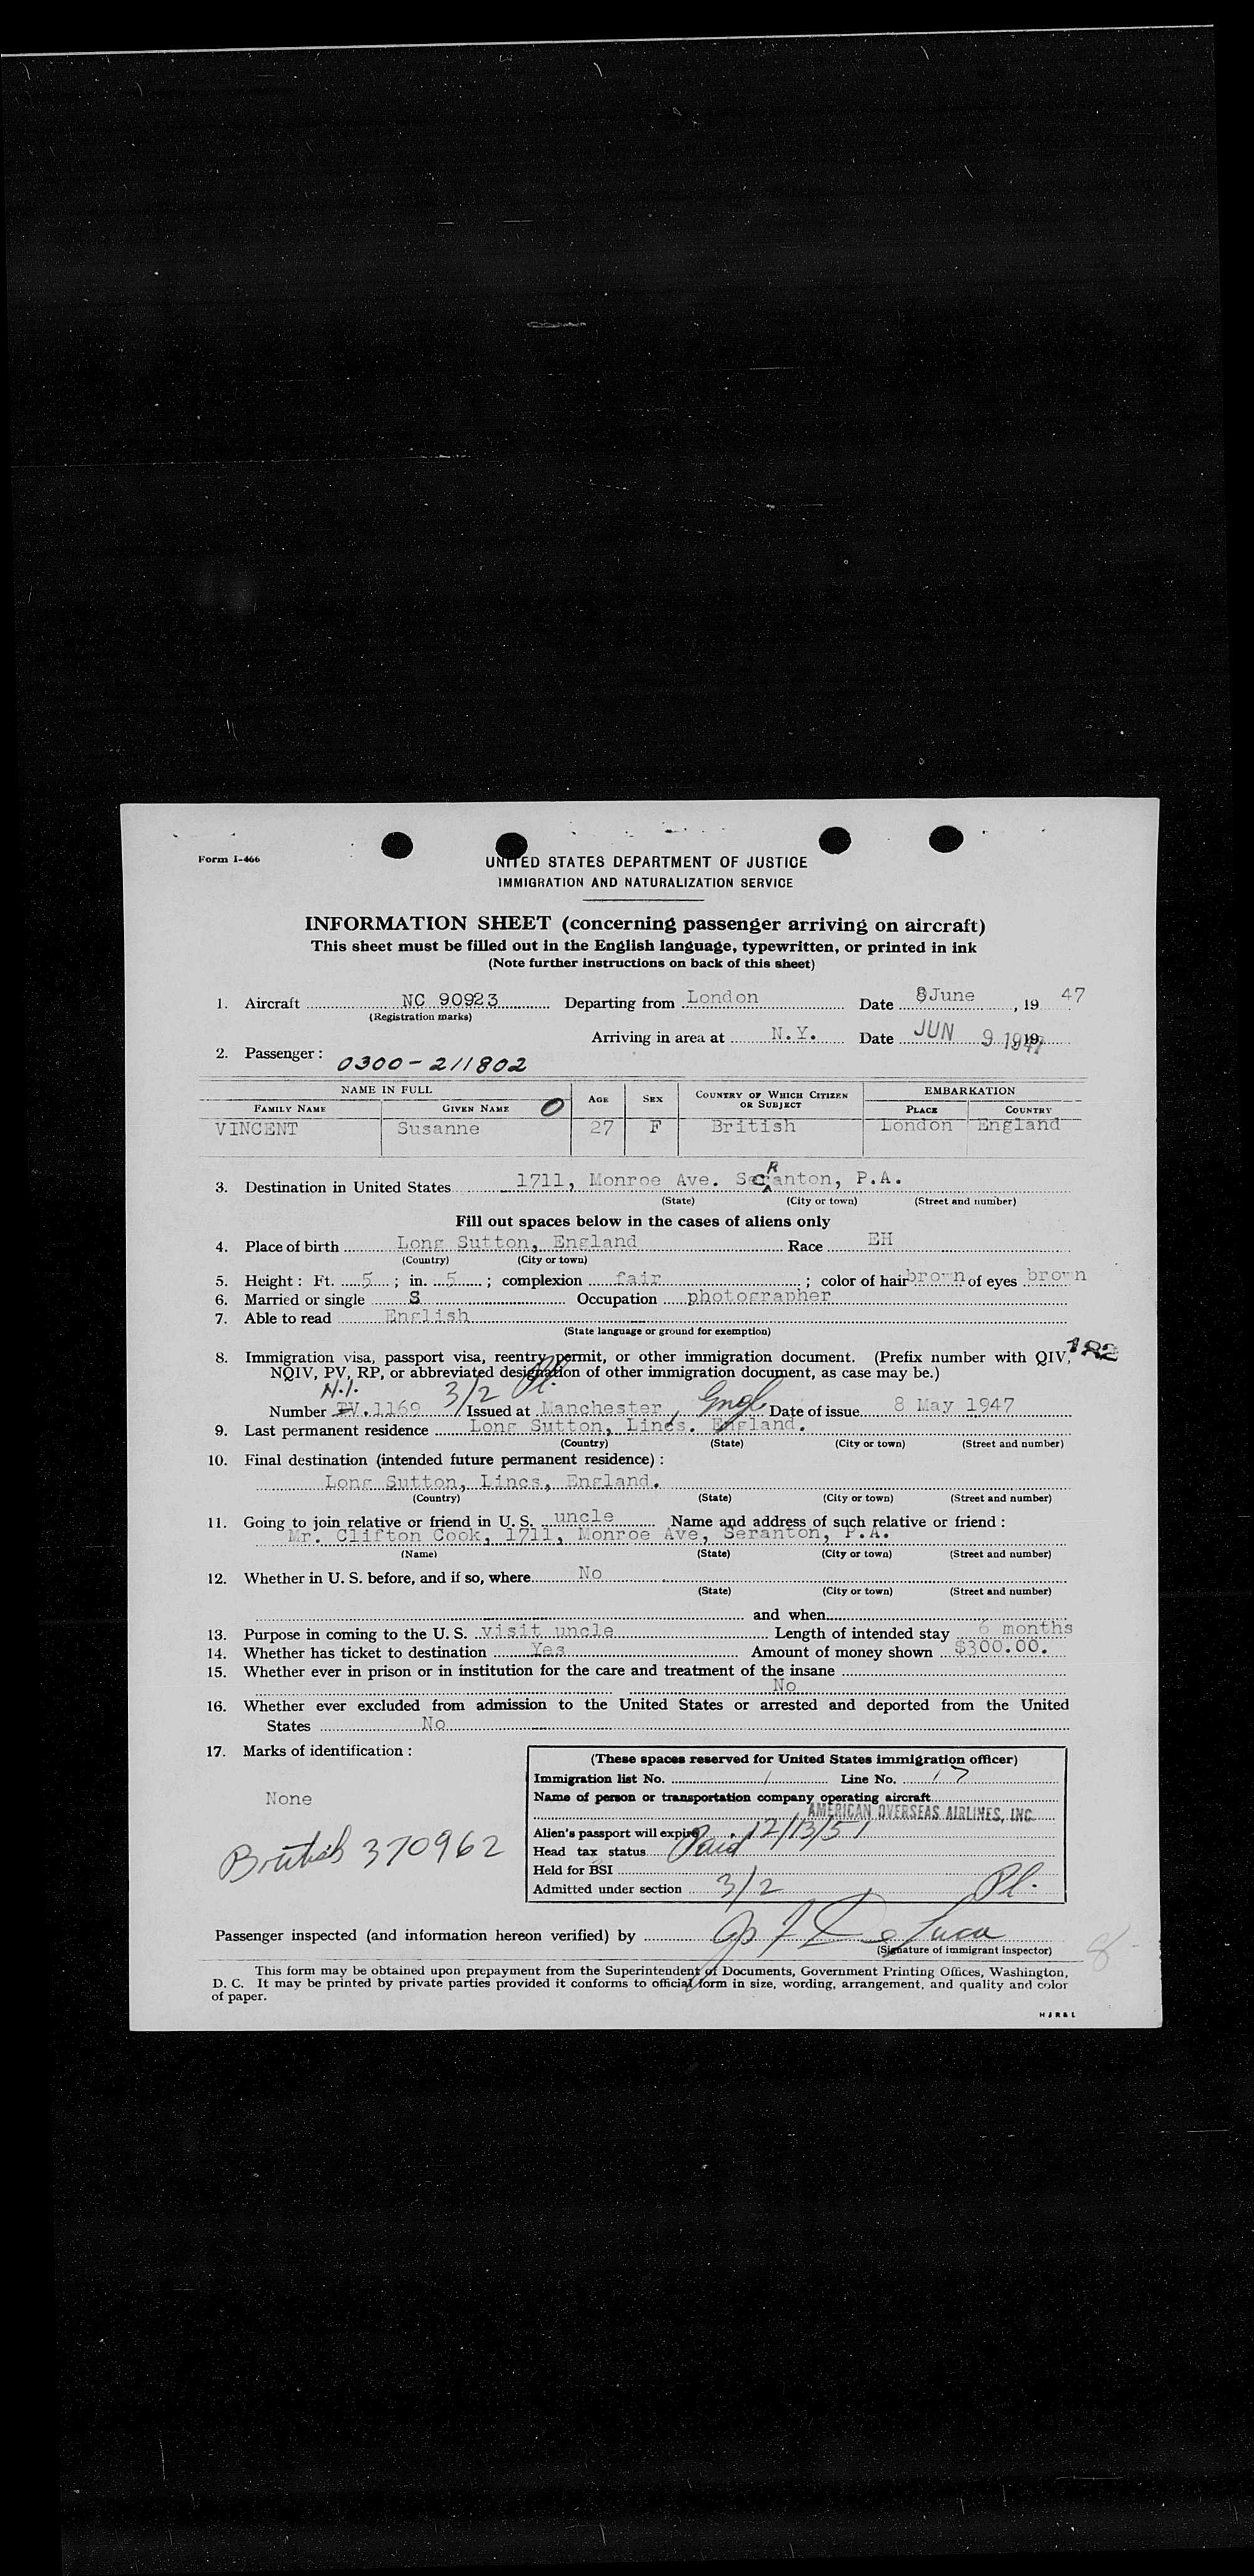 Form I-466
UNITED STATES DEPARTMENT OF JUSTICE
IMMIGRATION AND NATURALIZATION SERVICE
INFORMATION SHEET (concerning passenger arriving on aircraft)
This sheet must be filled out in the English language, typewritten, or printed in ink
(Note further instructions on back of this sheet)
1. Aircraft NC 90923 Departing from London Date 8 June, 19 47
(Registration marks)
Arriving in area at N.Y. Date JUN 9 1947 19
2. Passenger: 0300-211802
NAME IN FULL AGE SEX COUNTRY OF WHICH CITIZEN OR SUBJECT EMBARKATION
FAMILY NAME GIVEN NAME 0 PLACE COUNTRY
VINCENT Susanne 27 F British London England
3. Destination in United States 1711, Monroe Ave. ScRanton, P.A.
(State) (City or town) (Street and number)
Fill out spaces below in the cases of aliens only
4. Place of birth Long Sutton, England Race EH
(Country) (City or town)
5. Height: Ft. 5; in. 5; complexion fair; color of hair brown of eyes brown
6. Married or single S Occupation photographer
7. Able to read English
(State language or ground for exemption)
8. Immigration visa, passport visa, reentry permit, or other immigration document. (Prefix number with QIV, 182
NQIV, PV, RP, or abbreviated designation of other immigration document, as case may be.)
N.I. 3/2 Pl.
Number TV.1169 Issued at Manchester, Engl Date of issue 8 May 1947
9. Last permanent residence Long Sutton, Lincs. England.
(Country) (State) (City or town) (Street and number)
10. Final destination (intended future permanent residence):
Long Sutton, Lincs, England.
(Country) (State) (City or town) (Street and number)
11. Going to join relative or friend in U. S. uncle Name and address of such relative or friend:
Mr. Clifton Cook, 1711, Monroe Ave, Seranton, P.A.
(Name) (State) (City or town) (Street and number)
12. Whether in U. S. before, and if so, where No
(State) (City or town) (Street and number)
and when
13. Purpose in coming to the U. S. visit uncle Length of intended stay 6 months
14. Whether has ticket to destination Yes Amount of money shown $300.00.
15. Whether ever in prison or in institution for the care and treatment of the insane
No
16. Whether ever excluded from admission to the United States or arrested and deported from the United
States No
17. Marks of identification:
None
British 370962
(These spaces reserved for United States immigration officer)
Immigration list No. 1 Line No. 17
Name of person or transportation company operating aircraft
AMERICAN OVERSEAS AIRLINES, INC.
Alien's passport will expire 12/13/51
Head tax status Paid
Held for BSI
Admitted under section 3/2 Pl.
Passenger inspected (and information hereon verified) by De Luca
(Signature of immigrant inspector)
8
This form may be obtained upon prepayment from the Superintendent of Documents, Government Printing Offices, Washington,
D. C. It may be printed by private parties provided it conforms to official form in size, wording, arrangement, and quality and color
of paper.
HJR&L